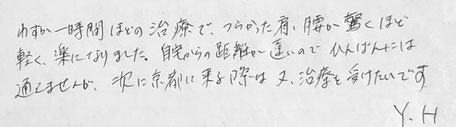 わずか一時間ほどの治療で、つらかった肩、腰が驚くほど
軽く、楽になりました。自宅からの距離が遠いのでひんぱんには
通えませんが、次に京都に来る際は又、治療を受けたいです
Y.H